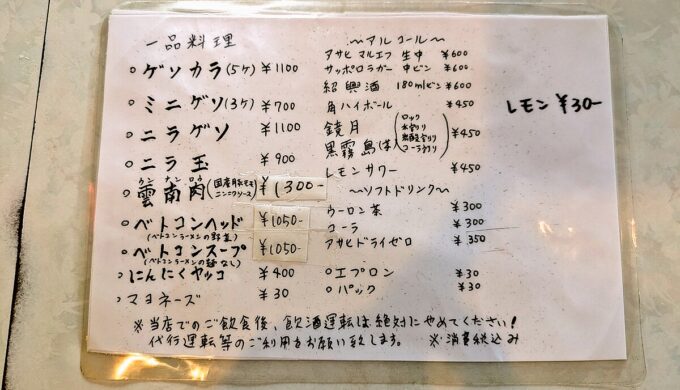 一品料理
○ ゲソカラ(5ケ) ¥1100
○ ミニゲソ(3ケ) ¥700
○ ニラゲソ ¥1100
○ ニラ玉 ¥900
ウンナンロウ
○ 雲南肉(国産豚モモ ニンニクソース) ¥1300-
○ ベトコンヘッド ¥1050-
(ベトコンラーメンの野菜)
○ ベトコンスープ ¥1050-
(ベトコンラーメンの麺なし)
○ にんにくヤッコ ¥400
○ マヨネーズ ¥30
〜アルコール〜
アサヒ マルエフ 生中 ¥600
サッポロラガー 中ビン ¥600
紹興酒 180mlビン ¥600
角ハイボール ¥450
鏡月
黒霧島(芋)
ロック
水割り
炭酸割り
コーラ割り
¥450
レモンサワー ¥450
〜ソフトドリンク〜
ウーロン茶 ¥300
コーラ ¥300
アサヒドライゼロ ¥350
○エプロン ¥30
○パック ¥30
レモン ¥30-
※当店でのご飲食後、飲酒運転は絶対にやめてください!
代行運転等のご利用をお願い致します。 ※消費税込み